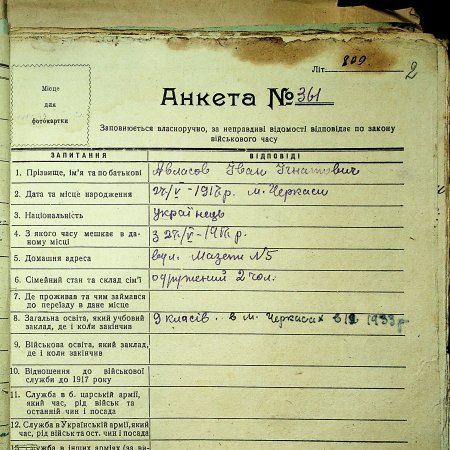 Літ. 809
2
Місце
для
фотокартки
Анкета № 361
Заповнюється власноручно, за неправдиві відомості відповідає по закону
військового часу
ЗАПИТАННЯ ВІДПОВІДІ
1. Прізвище, ім'я та по батькові Авласов Іван Ігнатович
2. Дата та місце народження 27/V – 1917 р. м. Черкаси
3. Національність українець
4. З якого часу мешкає в даному місці з 27/V – 1917 р.
5. Домашня адреса вул. Мазепи № 5
6. Сімейний стан та склад сім'ї одружений 2 чол.
7. Де проживав та чим займався
до переїзду в дане місце
8. Загальна освіта, який учбовий
заклад, де і коли закінчив 9 класів. в м. Черкасах в 1933 р
9. Військова освіта, який заклад,
де і коли закінчив
10. Відношення до військової
служби до 1917 року
11. Служба в б. царській армії,
який час, рід військ та
останній чин і посада
12. Служба в Українській армії, який
час, рід військ та ост. чин і посада
13. Служба в інших арміях (за ви-